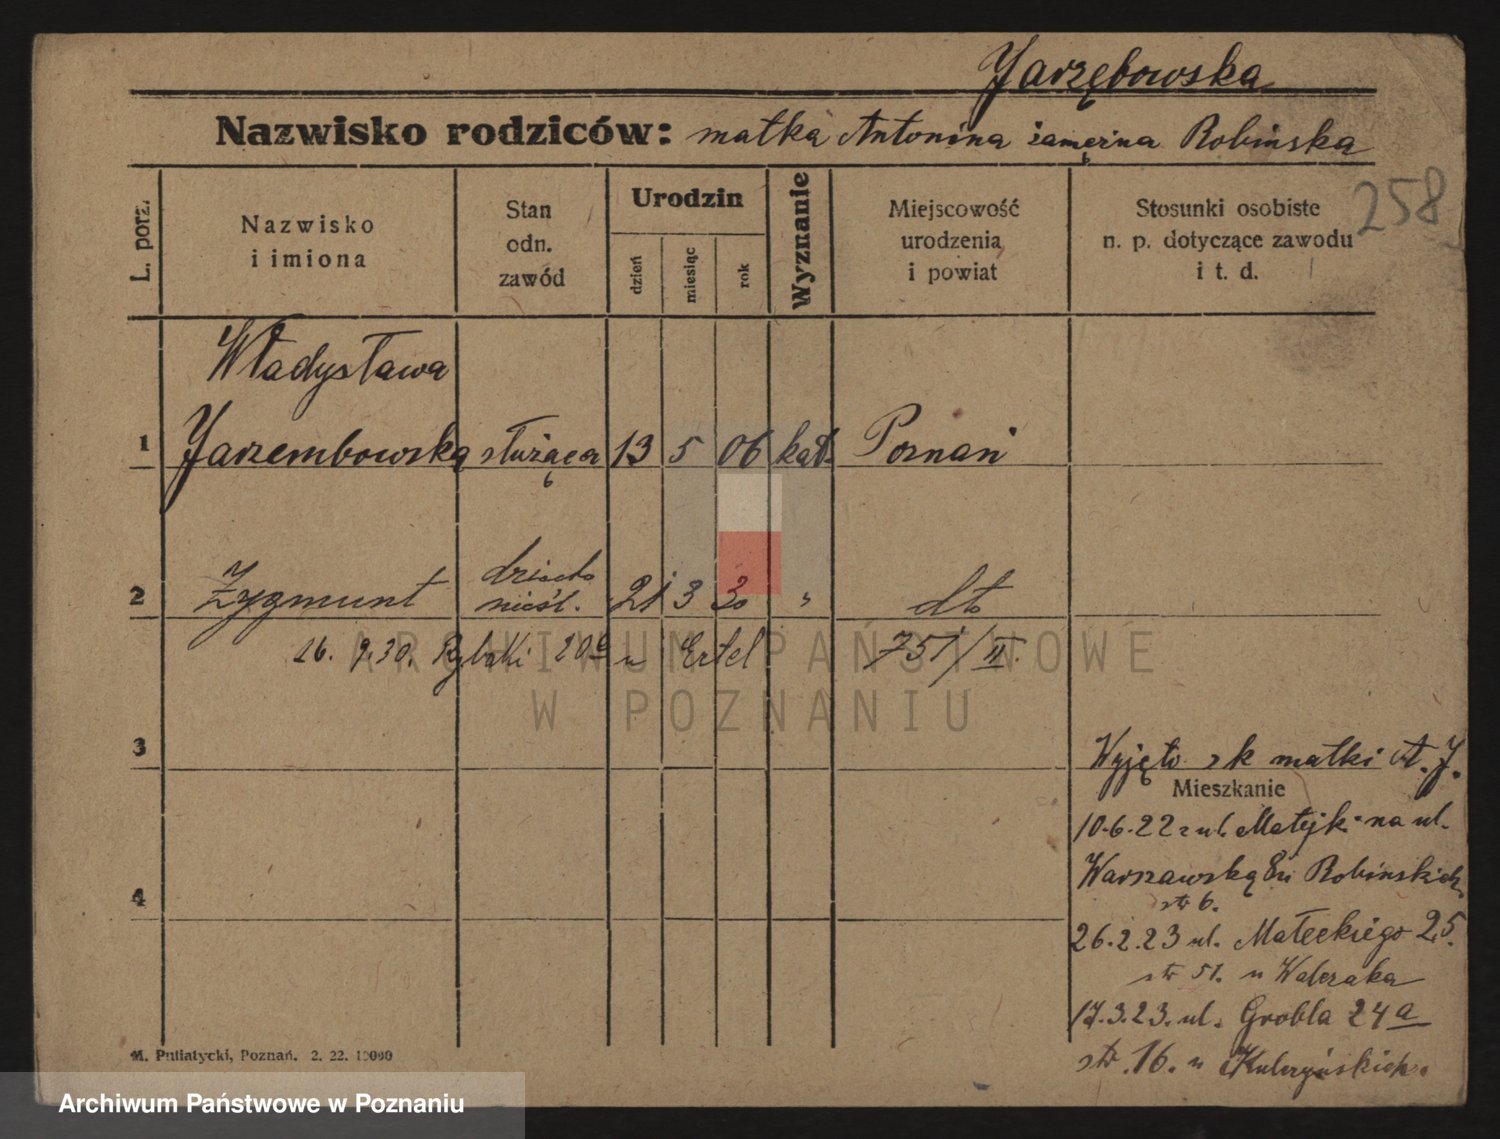 Jarzębowska
Nazwisko rodziców: matka Antonina zamężna Robińska
258
L. porz.
Nazwisko
i imiona
Stan
odn.
zawód
Urodzin
dzień
miesiąc
rok
Wyznanie
Miejscowość
urodzenia
i powiat
Stosunki osobiste
n. p. dotyczące zawodu
i t. d.
Władysława
1 Jarzembowska służąca 13 5 06 kat. Poznań
dziecko
2 Zygmunt nieśl. 21 3 30 " dto
16. 9.30. Rybaki 20a u Ertel 751/II.
ARCHIWUM PAŃSTWOWE
W POZNANIU
3
Wyjęto z k matki A. J.
Mieszkanie
10.6.22 z ul. Matejk. na ul.
Warszawską 8 u Robińskich
str 6.
4
26.2.23 ul. Małeckiego 25.
str 51. u Walczaka
17.3.23. ul. Grobla 24a
str. 16. u
M. Putiatycki, Poznań. 2. 22. 10000
Archiwum Państwowe w Poznaniu